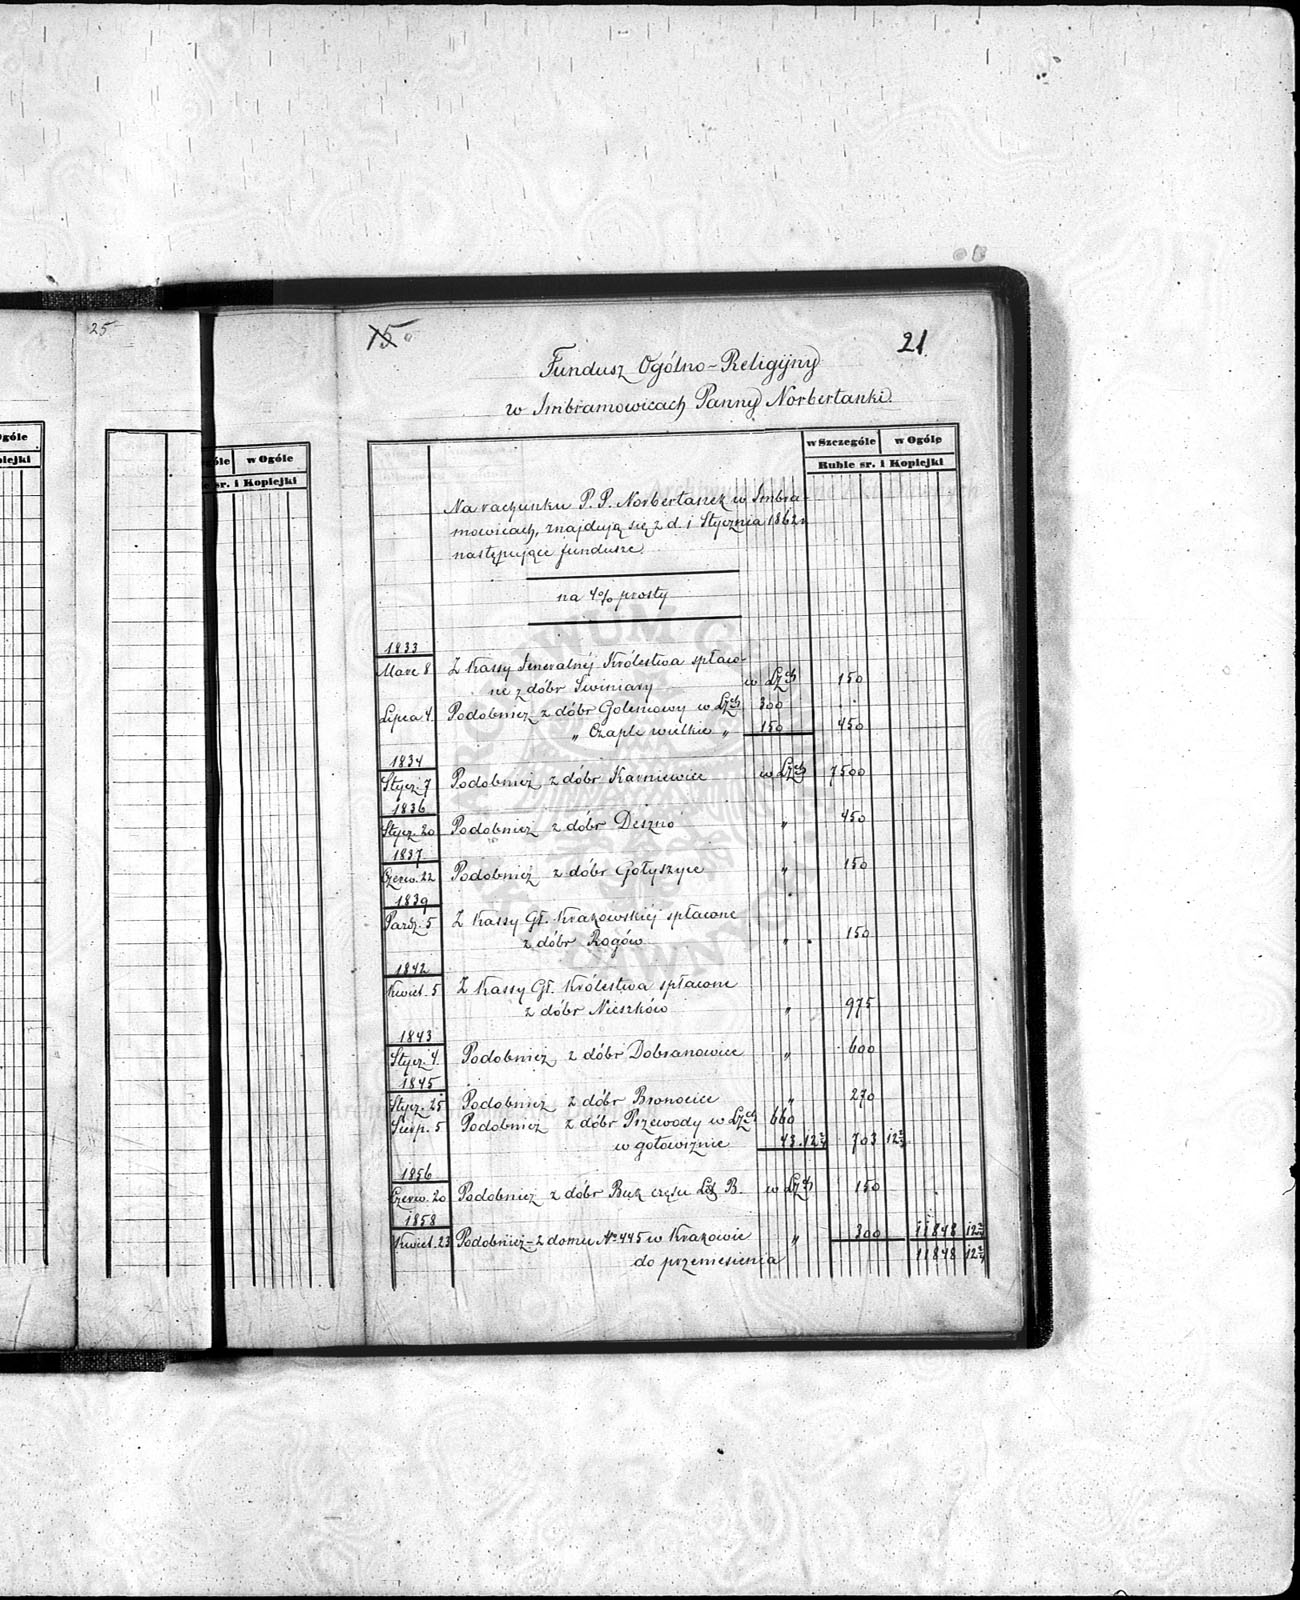 25
ogóle
piejki
góle w Ogóle
sr. i Kopiejki
15
21.
Fundusz Ogólno-Religijny
w Imbramowicach Panny Norbertanki.
w Szczególe w Ogóle
Ruble sr. i Kopiejki
Na rachunku P. P. Norbertanek w Imbra-
mowicach, znajdują się z d. 1 Stycznia 1862 r.
następujące fundusze.
na 4% prosty
1833
Marc 8 Z Kassy Jeneralnéj Królestwa spłaco-
ne z dóbr Swiniary w Lzch 150
Lipca 4. Podobnież z dóbr Goleniowy w Lzch 300
„ Czaple wielkie „ 150 450
1834
Stycz. 7 Podobnież z dóbr Karniewice w Lzch 7500
1836
Stycz. 20 Podobnież z dóbr Deszno „ 450
1837
Czerw. 22 Podobnież z dóbr Gołyszyce „ 150
1839
Paźdz. 5 Z Kassy Gł. Krakowskiéj spłacone
z dóbr Rogów „ 150
1842
Kwiet. 5 Z Kassy Gł. Królestwa spłacone
z dóbr Nieszków „ 975
1843
Stycz. 4. Podobnież z dóbr Dobranowice „ 600
1845
Stycz. 25 Podobnież z dóbr Bronocice „ 270
Sierp. 5 Podobnież z dóbr Przewody w Lzch 660
w gotowiznie 43.12 703 12
1856
Czerw. 20 Podobnież z dóbr Buk części B. w Lzch 150
1858
Kwiet. 23 Podobnież z domu No 445 w Krakowie „ 300 11848 12
do przeniesienia 11848 12
ARCHIWUM GŁÓWNE AKT DAWNYCH